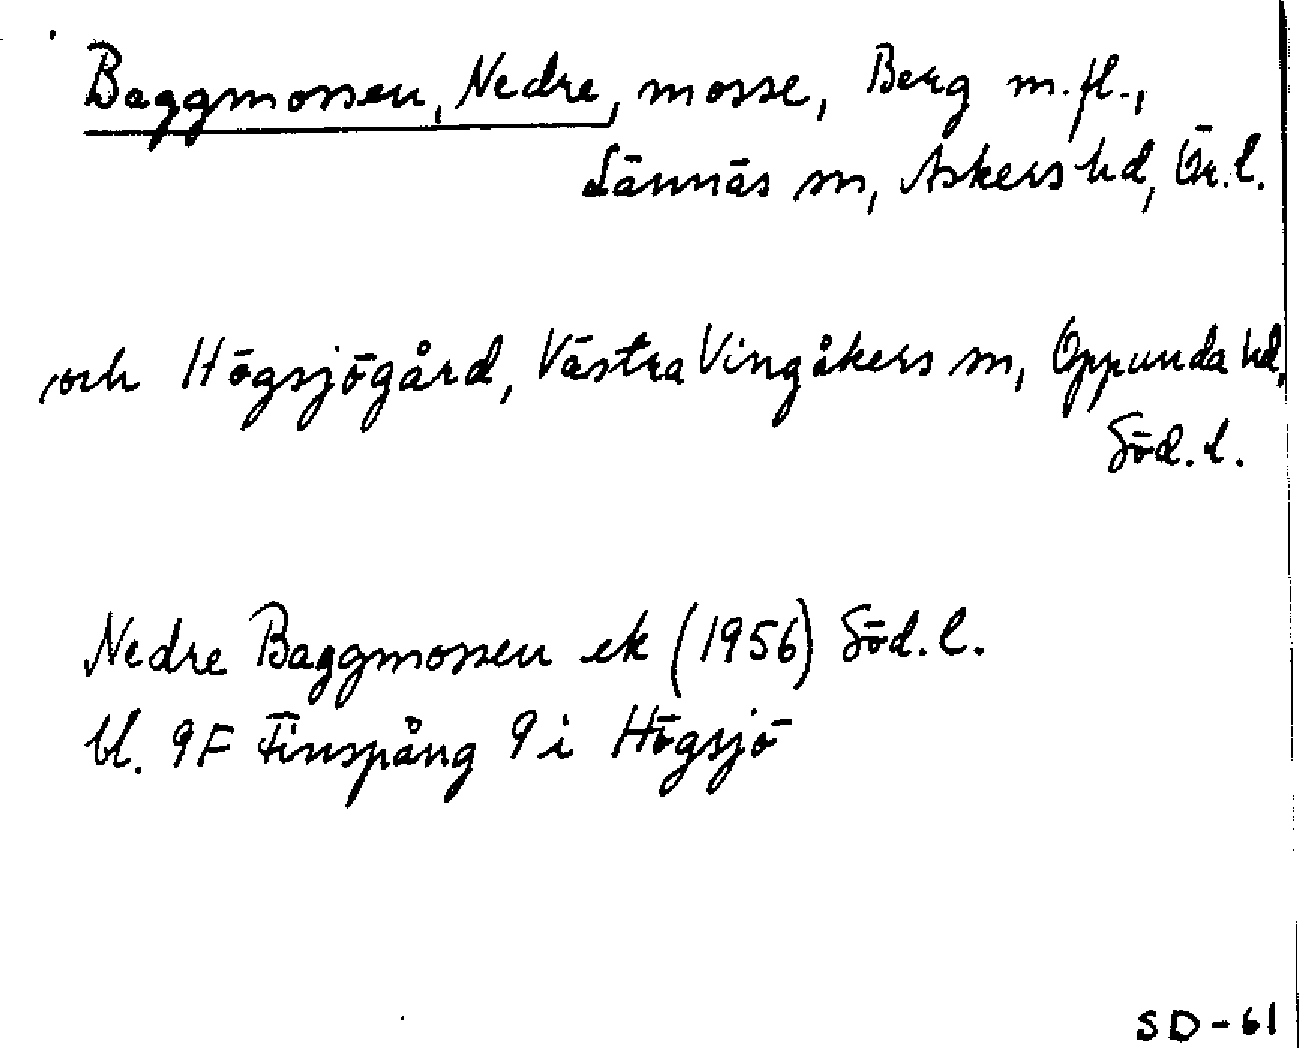 Baggmossen, Nedre, mosse, Berg m.fl.,
Lännäs sn, Askers hd, Ör.l.
och Högsjögård, Västra Vingåkers sn, Oppunda hd,
Söd.l.
Nedre Baggmossen ek (1956) Söd.l.
bl. 9F Finspång 9 i Högsjö
SD-61